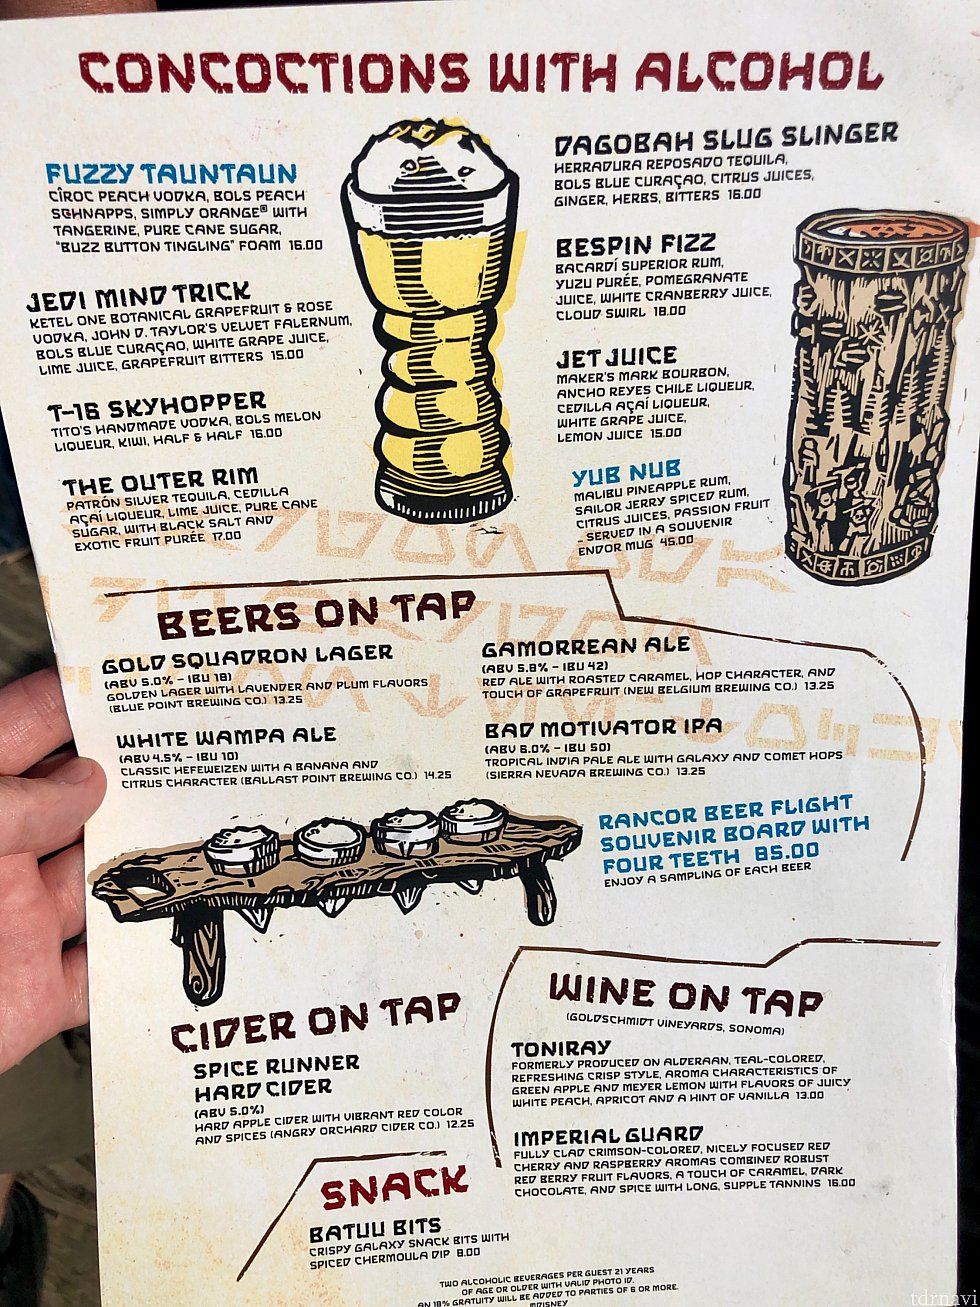 CONCOCTIONS WITH ALCOHOL
FUZZY TAUNTAUN
CÎROC PEACH VODKA, BOLS PEACH
SCHNAPPS, SIMPLY ORANGE® WITH
TANGERINE, PURE CANE SUGAR,
"BUZZ BUTTON TINGLING" FOAM 16.00
JEDI MIND TRICK
KETEL ONE BOTANICAL GRAPEFRUIT & ROSE
VODKA, JOHN D. TAYLOR'S VELVET FALERNUM,
BOLS BLUE CURAÇAO, WHITE GRAPE JUICE,
LIME JUICE, GRAPEFRUIT BITTERS 15.00
T-16 SKYHOPPER
TITO'S HANDMADE VODKA, BOLS MELON
LIQUEUR, KIWI, HALF & HALF 16.00
THE OUTER RIM
PATRÓN SILVER TEQUILA, CEDILLA
AÇAÍ LIQUEUR, LIME JUICE, PURE CANE
SUGAR, WITH BLACK SALT AND
EXOTIC FRUIT PURÉE 17.00
DAGOBAH SLUG SLINGER
HERRADURA REPOSADO TEQUILA,
BOLS BLUE CURAÇAO, CITRUS JUICES,
GINGER, HERBS, BITTERS 16.00
BESPIN FIZZ
BACARDÍ SUPERIOR RUM,
YUZU PURÉE, POMEGRANATE
JUICE, WHITE CRANBERRY JUICE,
CLOUD SWIRL 18.00
JET JUICE
MAKER'S MARK BOURBON,
ANCHO REYES CHILE LIQUEUR,
CEDILLA AÇAÍ LIQUEUR,
WHITE GRAPE JUICE,
LEMON JUICE 15.00
YUB NUB
MALIBU PINEAPPLE RUM,
SAILOR JERRY SPICED RUM,
CITRUS JUICES, PASSION FRUIT
- SERVED IN A SOUVENIR
ENDOR MUG 45.00
BEERS ON TAP
GOLD SQUADRON LAGER
(ABV 5.0% - IBU 18)
GOLDEN LAGER WITH LAVENDER AND PLUM FLAVORS
(BLUE POINT BREWING CO.) 13.25
WHITE WAMPA ALE
(ABV 4.5% - IBU 10)
CLASSIC HEFEWEIZEN WITH A BANANA AND
CITRUS CHARACTER (BALLAST POINT BREWING CO.) 14.25
GAMORREAN ALE
(ABV 5.8% - IBU 42)
RED ALE WITH ROASTED CARAMEL, HOP CHARACTER, AND
TOUCH OF GRAPEFRUIT (NEW BELGIUM BREWING CO.) 13.25
BAD MOTIVATOR IPA
(ABV 6.0% - IBU 50)
TROPICAL INDIA PALE ALE WITH GALAXY AND COMET HOPS
(SIERRA NEVADA BREWING CO.) 13.25
RANCOR BEER FLIGHT
SOUVENIR BOARD WITH
FOUR TEETH 85.00
ENJOY A SAMPLING OF EACH BEER
CIDER ON TAP
SPICE RUNNER
HARD CIDER
(ABV 5.0%)
HARD APPLE CIDER WITH VIBRANT RED COLOR
AND SPICES (ANGRY ORCHARD CIDER CO.) 12.25
WINE ON TAP
(GOLDSCHMIDT VINEYARDS, SONOMA)
TONIRAY
FORMERLY PRODUCED ON ALDERAAN, TEAL-COLORED,
REFRESHING CRISP STYLE, AROMA CHARACTERISTICS OF
GREEN APPLE AND MEYER LEMON WITH FLAVORS OF JUICY
WHITE PEACH, APRICOT AND A HINT OF VANILLA 13.00
IMPERIAL GUARD
FULLY CLAD CRIMSON-COLORED, NICELY FOCUSED RED
CHERRY AND RASPBERRY AROMAS COMBINED ROBUST
RED BERRY FRUIT FLAVORS, A TOUCH OF CARAMEL, DARK
CHOCOLATE, AND SPICE WITH LONG, SUPPLE TANNINS 16.00
SNACK
BATUU BITS
CRISPY GALAXY SNACK BITS WITH
SPICED CHERMOULA DIP 8.00
TWO ALCOHOLIC BEVERAGES PER GUEST 21 YEARS
OF AGE OR OLDER WITH VALID PHOTO ID.
AN 18% GRATUITY WILL BE ADDED TO PARTIES OF 6 OR MORE.
©DISNEY
tdrnavi